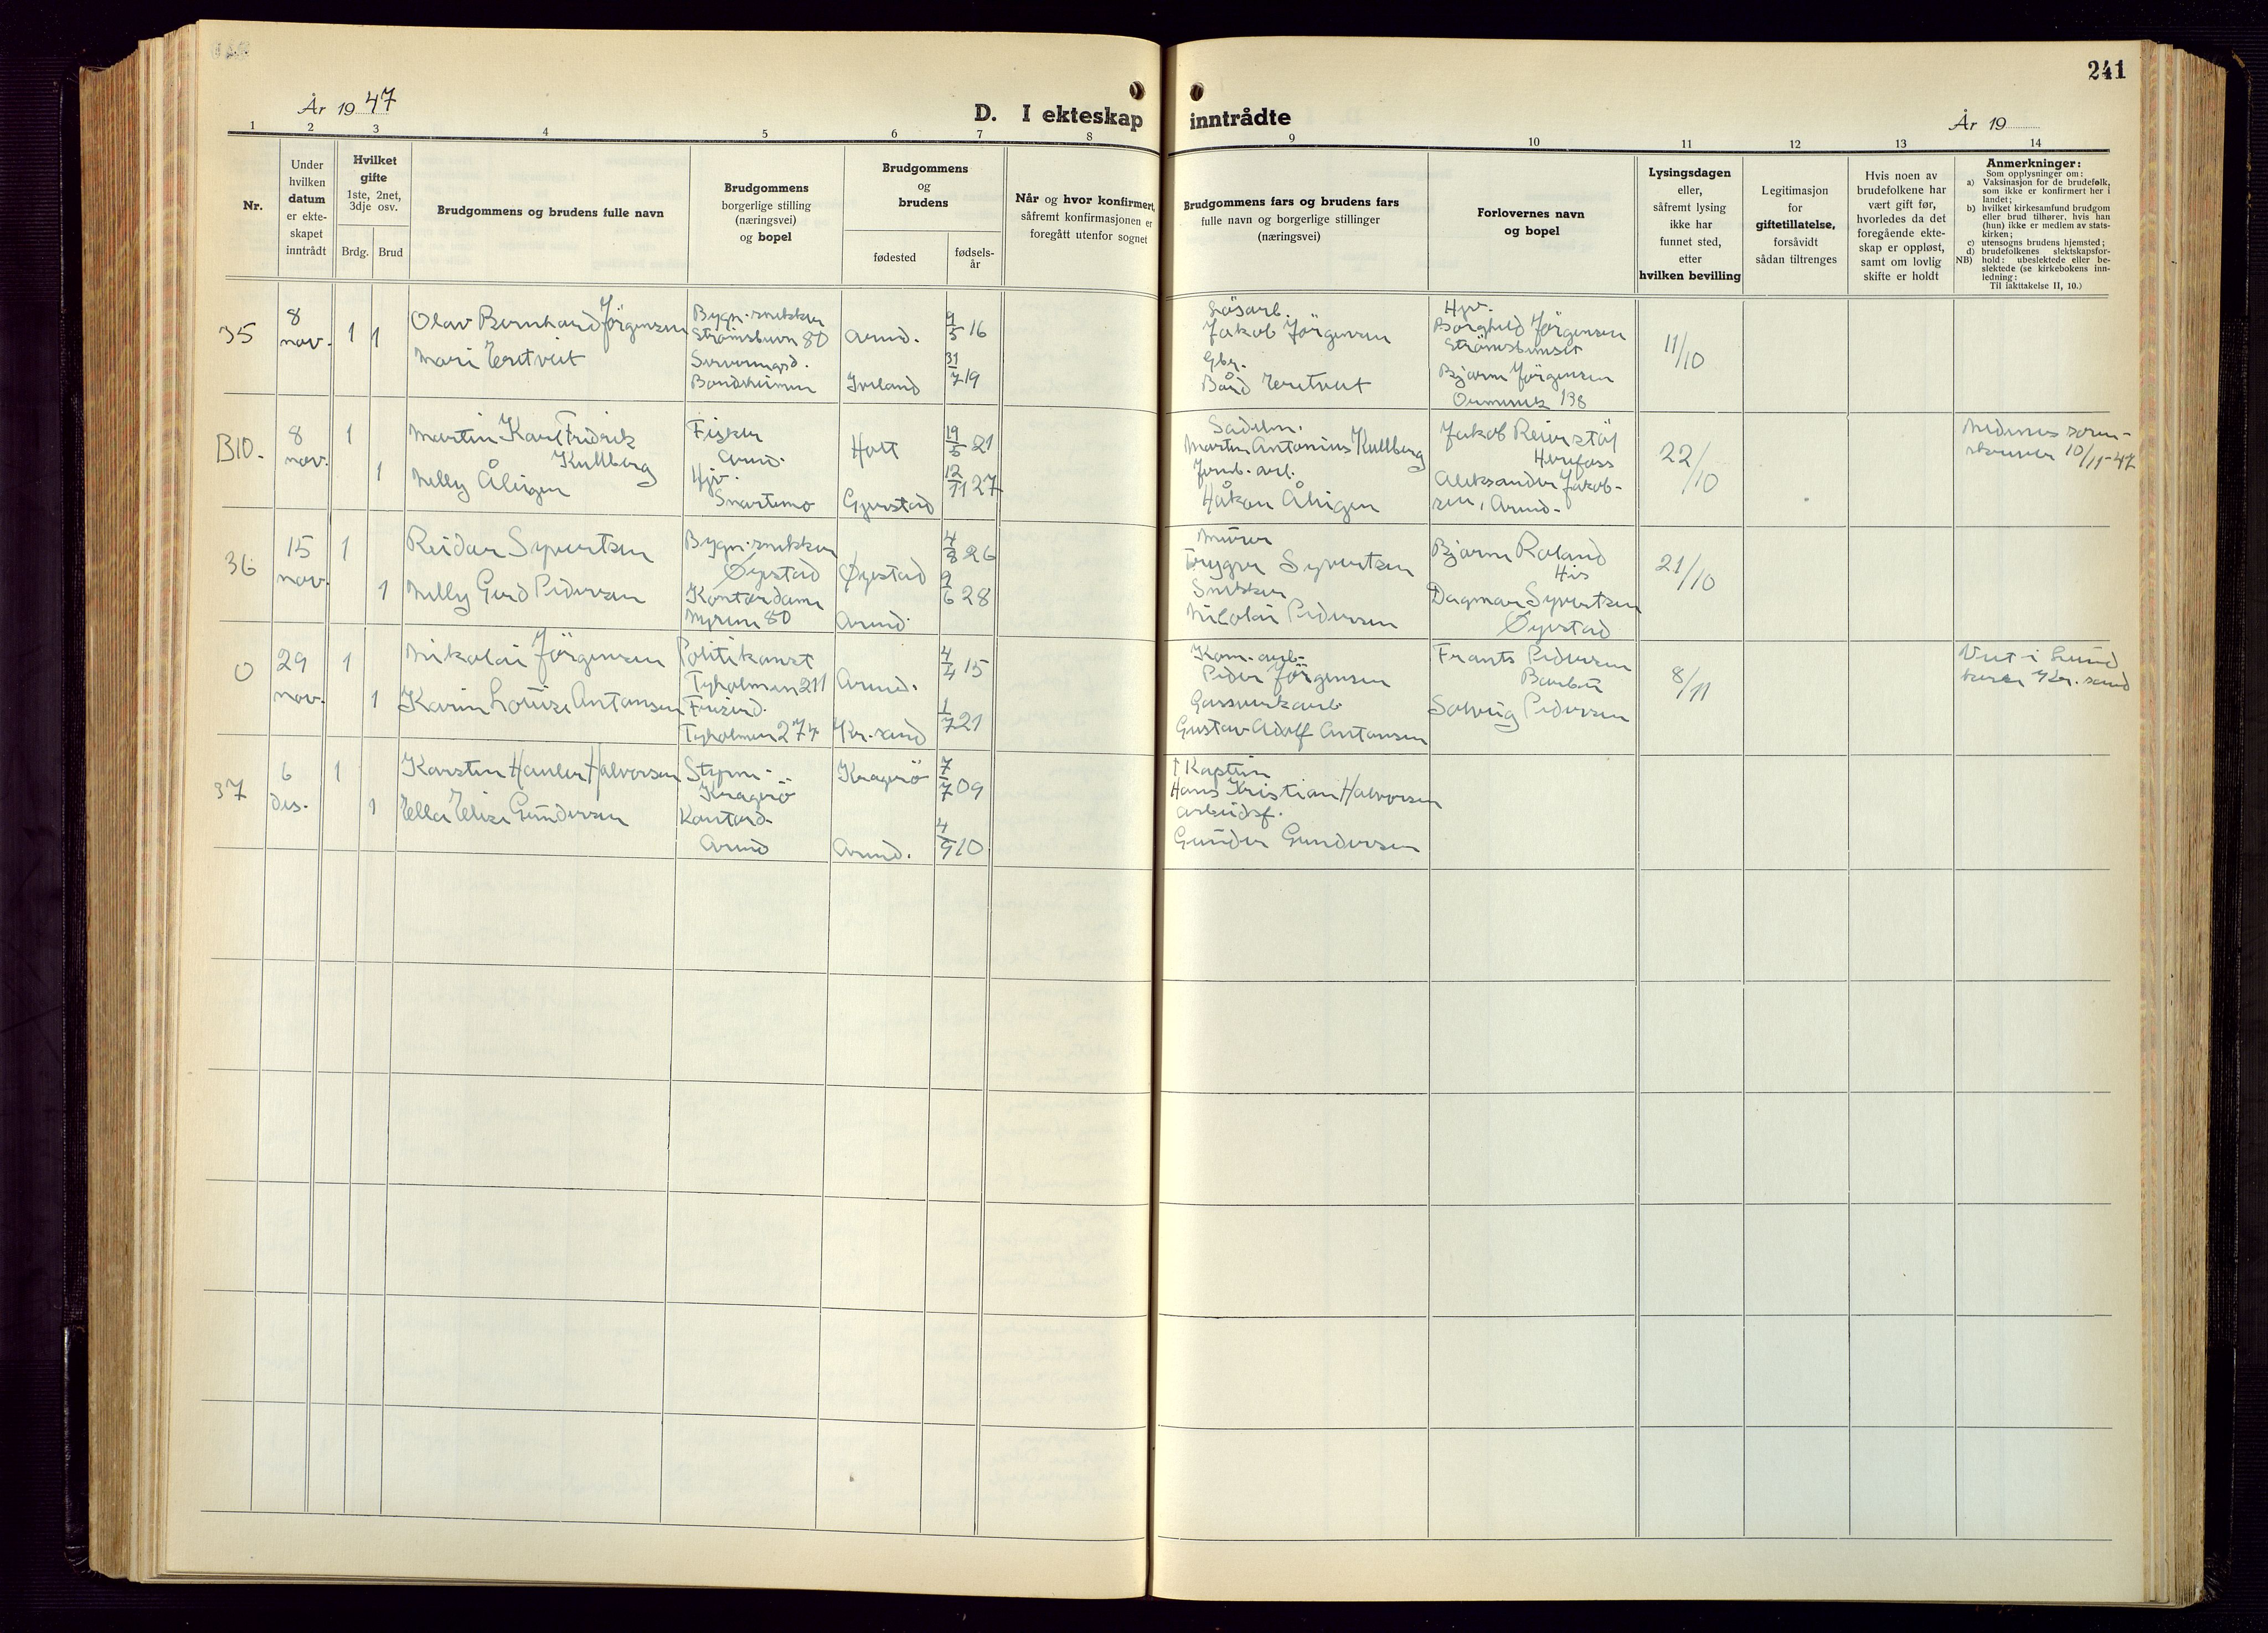 241
År 1947
D. I ekteskap inntrådte
År 19
1 2 3 4 5 6 7 8 9 10 11 12 13 14
Nr.
Under
hvilken
datum
er ekte-
skapet
inntrådt
Hvilket
gifte
1ste, 2net,
3dje osv.
Brdg.
Brud
Brudgommens og brudens fulle navn
Brudgommens
borgerlige stilling
(næringsvei)
og bopel
Brudgommens
og
brudens
fødested
fødsels-
år
Når og hvor konfirmert,
såfremt konfirmasjonen er
foregått utenfor sognet
Brudgommens fars og brudens fars
fulle navn og borgerlige stillinger
(næringsvei)
Forlovernes navn
og bopel
Lysingsdagen
eller,
såfremt lysing
ikke har
funnet sted,
etter
hvilken bevilling
Legitimasjon
for
giftetillatelse,
forsåvidt
sådan tiltrenges
Hvis noen av
brudefolkene har
vært gift før,
hvorledes da det
foregående ekte-
skap er oppløst,
samt om lovlig
skifte er holdt
Anmerkninger:
Som opplysninger om:
a) Vaksinasjon for de brudefolk,
som ikke er konfirmert her i
landet;
b) hvilket kirkesamfund brudgom
eller brud tilhører, hvis han
(hun) ikke er medlem av stats-
kirken;
c) utensogns brudens hjemsted;
d) brudefolkenes slektskapsfor-
NB) hold: ubeslektede eller be-
slektede (se kirkebokens inn-
ledning:
Til iakttakelse II, 10.)
35
8
nov.
1
1
Olav Bernhard Jörgensen
Mari Eretveit
Bygn.snekker
Strömsbuvn 80
Serveringsd.
Bondeheimen
Arend.
Iveland
9/5 16
31/7 19
Løsarb.
Jakob Jörgensen
Gbr.
Bård Eretveit
Hjv.
Borghild Jörgensen
Strömsbuset
Bjarne Jörgensen
138
11/10
B10.
8
nov.
1
1
Martin Karl Fridrik
Kullberg
Nelly Ålingen
Fisker
Arend.
Hjv.
Snartemo
Holt
Gjerstad
19/5 21
12/11 27
Sadelm.
Martin Antonius Kullberg
Jernb.arb.
Håkon Ålingen
Jakob Reierstöl
Herefoss
Aleksander Jakob-
sen, Arend.
22/10
Nedenes soren-
skriver 10/11-47
36
15
nov.
1
1
Reidar Syvertsen
Nelly Gerd Pedersen
Bygn.snekker
Øyestad
Kontordame
Myrene 80
Øyestad
Arend.
4/8 26
9/6 28
Murer
Trygve Syvertsen
Snekker
Nicolai Pedersen
Bjarne Roland
His
Dagmar Syvertsen
Øyestad
21/10
0
29
nov.
1
1
Nikolai Jörgensen
Karin Louise Antonsen
Politikonst
Tyholmen 211
Frisørd.
Tyholmen 274
Arend.
Kr.sand
4/4 15
1/7 21
Kom.arb.
Peder Jörgensen
Gassverkarb.
Gustav Adolf Antonsen
Frants Pedersen
Barbu
Solveig Pedersen
8/11
Viet i Lund
kirke Kr.sand
37
6
des.
1
1
Karsten Hanler Halvorsen
Ella Elise Gundersen
Styrm.
Kragerö
Kontord.
Arend
Kragerö
Arend.
7/7 09
4/9 10
† Kaptein
Hans Kristian Halvorsen
Arbeidsf.
Gunder Gundersen